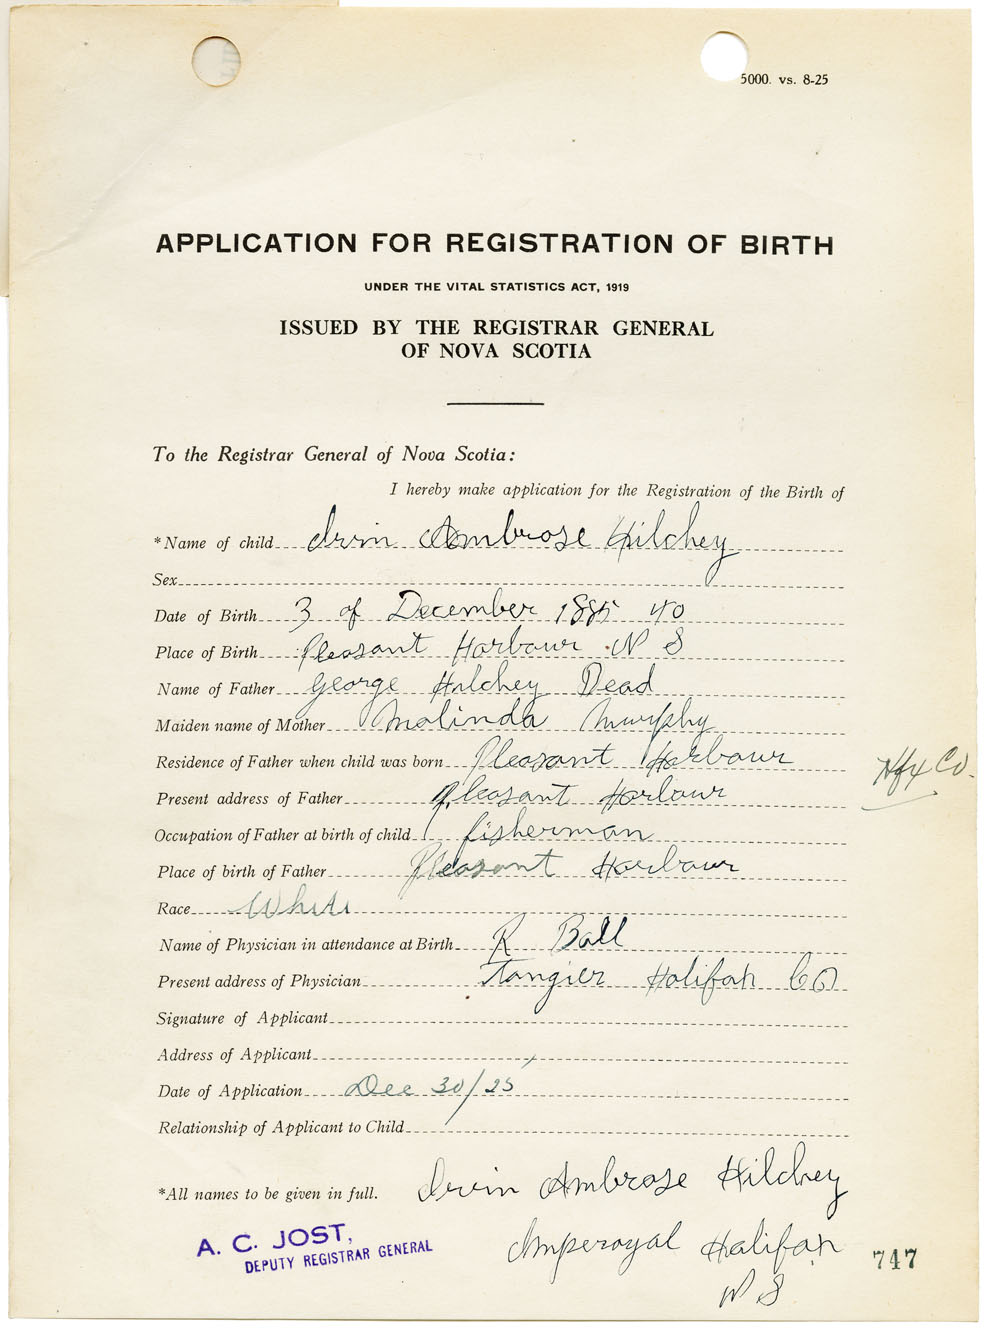 5000. vs. 8-25
APPLICATION FOR REGISTRATION OF BIRTH
UNDER THE VITAL STATISTICS ACT, 1919
ISSUED BY THE REGISTRAR GENERAL
OF NOVA SCOTIA
To the Registrar General of Nova Scotia:
I hereby make application for the Registration of the Birth of
*Name of child Irvin Ambrose Hilchey
Sex
Date of Birth 3 of December 1885 40
Place of Birth Pleasant Harbour N S
Name of Father George Hilchey Dead
Maiden name of Mother Malinda Murphy
Residence of Father when child was born Pleasant Harbour
Hfx Co.
Present address of Father Pleasant Harbour
Occupation of Father at birth of child fisherman
Place of birth of Father Pleasant Harbour
Race White
Name of Physician in attendance at Birth R Ball
Present address of Physician Tangier Halifax Co
Signature of Applicant
Address of Applicant
Date of Application Dec 30/25
Relationship of Applicant to Child
*All names to be given in full. Irvin Ambrose Hilchey
A. C. JOST,
DEPUTY REGISTRAR GENERAL
Imperoyal Halifax
N S
747